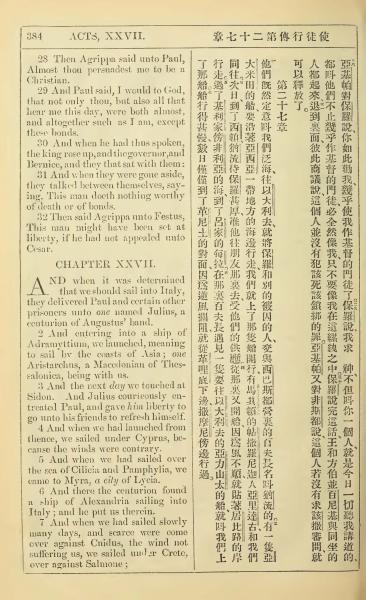 384 ACTS, XXVII. 章七十二第傳行徒使
28 Then Agrippa said unto Paul,
Almost thou persuadest me to be a
Christian.
29 And Paul said, I would to God,
that not only thou, but also all that
hear me this day, were both almost,
and altogether such as I am, except
these bonds.
30 And when he had thus spoken,
the king rose up, and the governor, and
Bernice, and they that sat with them:
31 And when they were gone aside,
they talked between themselves, say-
ing, This man doeth nothing worthy
of death or of bonds.
32 Then said Agrippa unto Festus,
This man might have been set at
liberty, if he had not appealed unto
Cesar.
CHAPTER XXVII.
AND when it was determined
that we should sail into Italy,
they delivered Paul and certain other
prisoners unto one named Julius, a
centurion of Augustus' band.
2 And entering into a ship of
Adramyttium, we launched, meaning
to sail by the coasts of Asia; one
Aristarchus, a Macedonian of Thes-
salonica, being with us.
3 And the next day we touched at
Sidon. And Julius courteously en-
treated Paul, and gave him liberty to
go unto his friends to refresh himself.
4 And when we had launched from
thence, we sailed under Cyprus, be-
cause the winds were contrary.
5 And when we had sailed over
the sea of Cilicia and Pamphylia, we
came to Myra, a city of Lycia.
6 And there the centurion found
a ship of Alexandria sailing into
Italy; and he put us therein.
7 And when we had sailed slowly
many days, and scarce were come
over against Cnidus, the wind not
suffering us, we sailed under Crete,
over against Salmone;
亞基帕對保羅說你如此勸我幾乎使我作基督的門徒了保羅說我求 神不但叫你一個人就是今日一切聽我講道的、
都叫他們不止幾乎作基督的門徒必全然像我只不要像我在這縲絏之中保羅說完這話王和方伯並百尼基與同坐的
人都起來退到裏面彼此商議說這個人並沒有犯該死該鎖綁的罪亞基帕又對非斯都說這個人若沒有求該撒審問就
可以釋放了。
第二十七章
他們既然定意叫我們泛海往以大利去就將保羅和別的囚犯交與西巴斯都營裏的百夫長名叫猶流的有一隻亞
大米田的船要沿着亞西亞一帶地方的海邊行走我們就上了那隻船開行有馬其頓的帖撒羅尼迦人亞里達古和我們
同往次日到了西頓猶流待保羅甚厚准他往朋友那裏去受他們的供應從那裏又開船因爲風不順就貼著居比路的岸
行走過了基利家旁非利亞的海到了呂家的每拉在那裏百夫長遇見一隻要往以大利去的亞力山太的船就叫我們上
了那船船行得甚慢數日僅僅到了革尼土的對面因爲逆風攔阻就從革哩底下邊撒摩尼傍邊行過